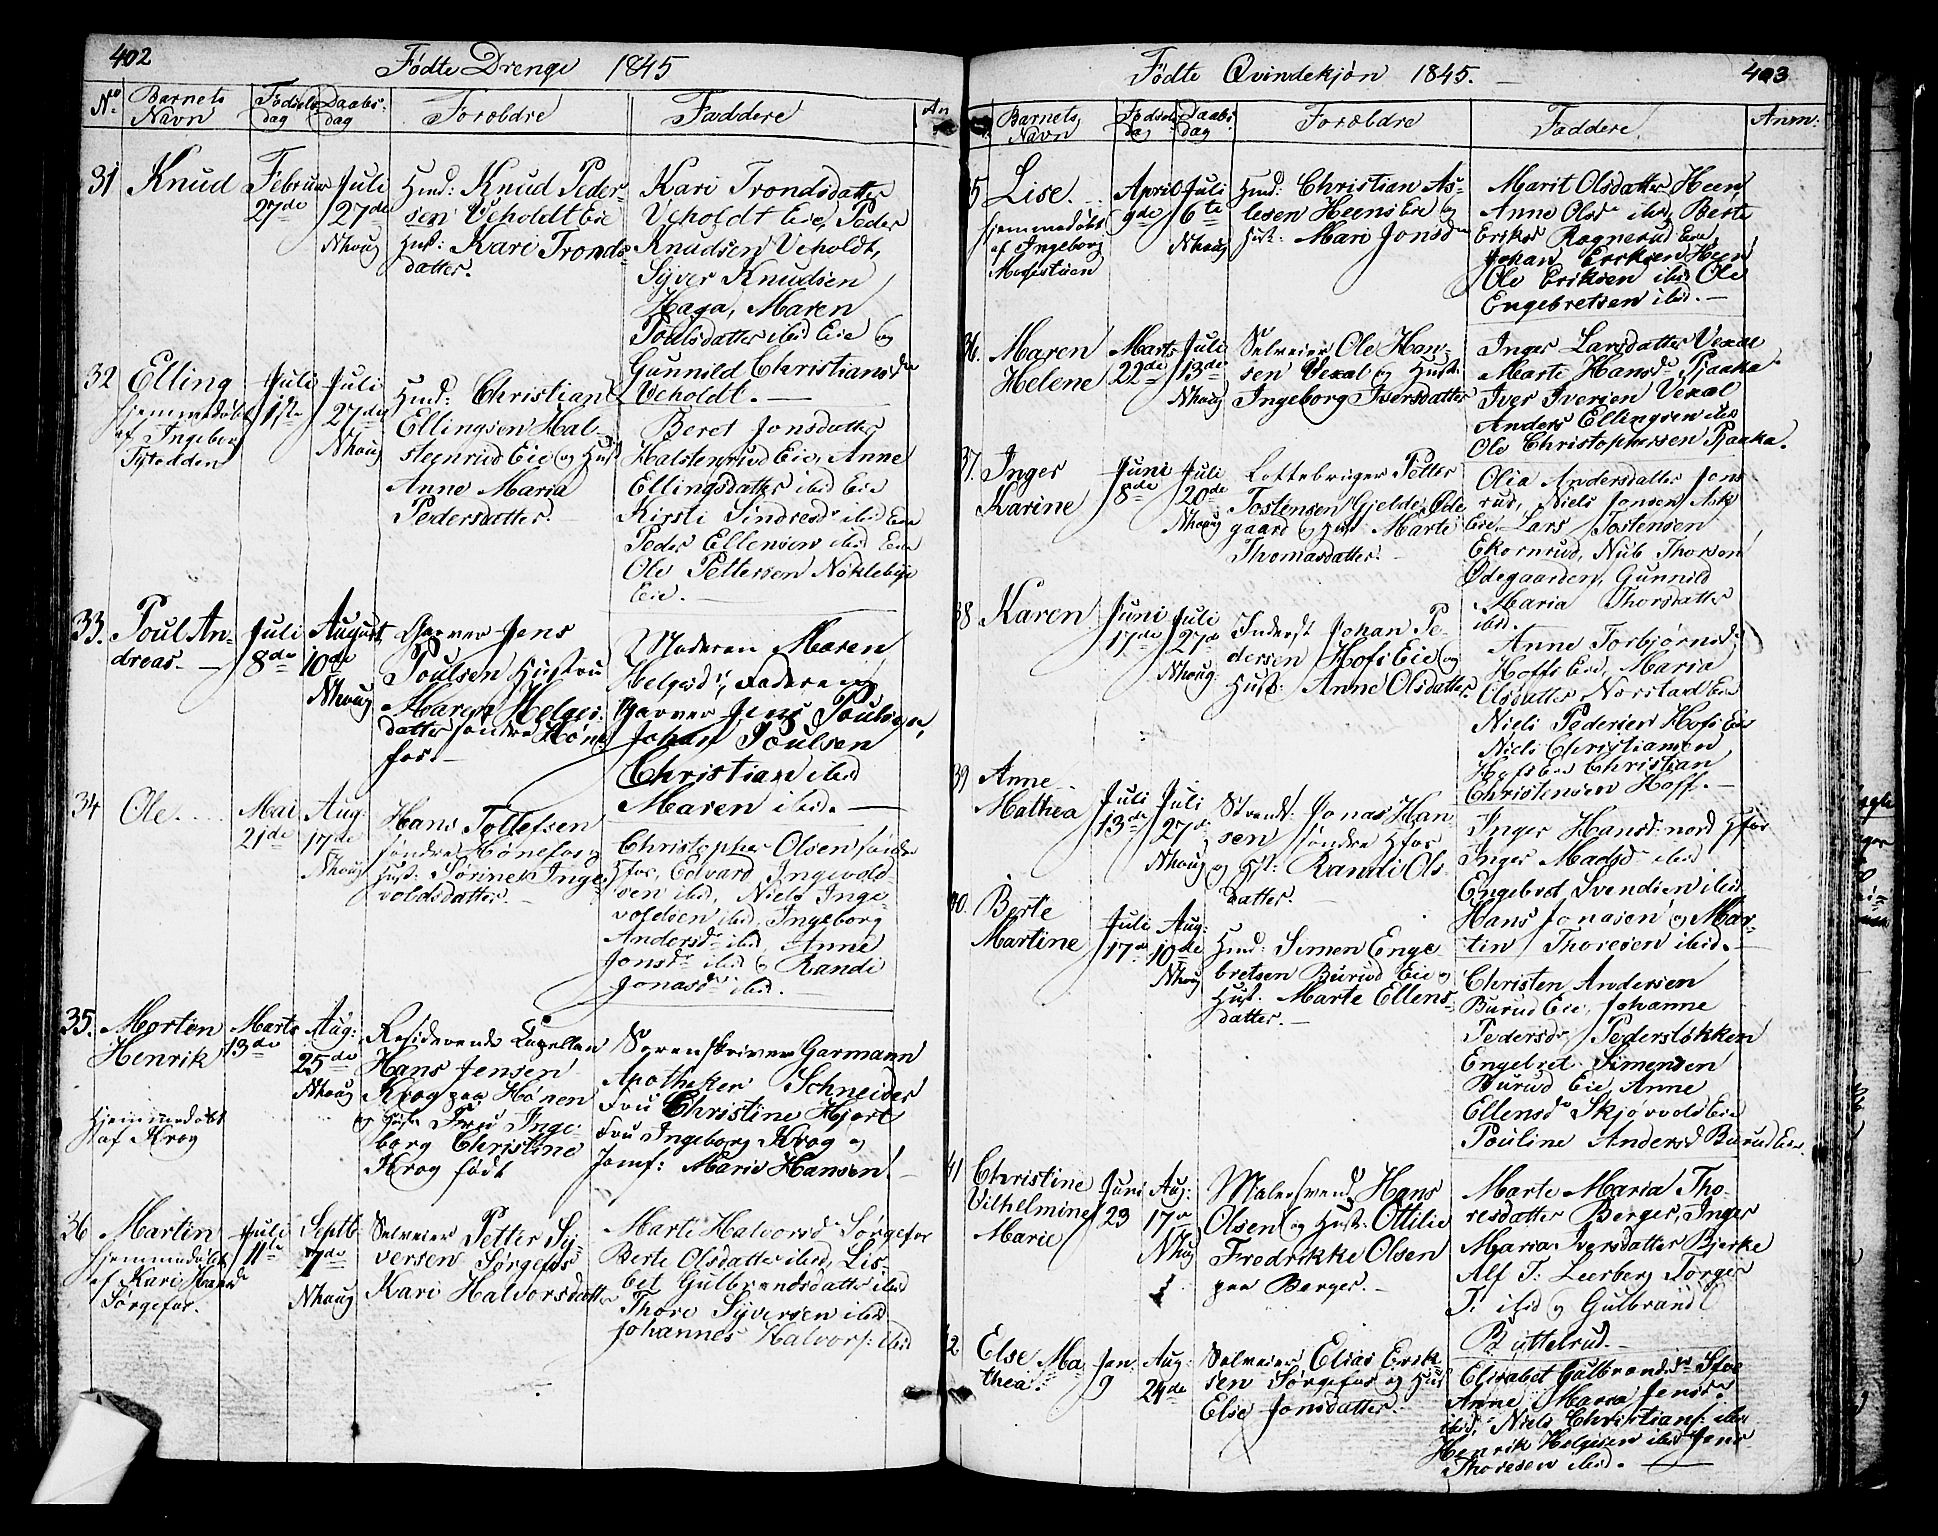 402
Fødte Drenge 1845
No. Barnets Navn Fødsels dag Daabs dag Forældre Faddere An
31 Knud Februar 27de Juli 27de Nhoug
Hmd: Knud Peder-
sen Veholdt Eie
Hust: Kari Tronds-
datter.
Kari Trondsdatter
Veholdt Eie, Peder
Knudsen Veholdt,
Syver Knudsen
Haga, Maren
Poulsdatter ibid Eie og
Gunnild Christiansdr
Veholdt.
32 Elling Juli 1ste Juli 27de Nhoug
hjemmedøbt
af Ingeborg
Hmd: Christian
Ellingsen Hal-
steenrud Eie og Hust
Anne Maria
Pedersdatter.
Beret Jonsdatter
Halstenrud Eie, Anne
Ellingsdatter ibid Eie
Kirsti Sindresdr ibid Eie
Peder Ellensen ibid Eie
Ole Pettersen Nøklebye
Eie.
33. Poul An-
dreas. Juli 8de August 10de Nhoug
Garver Jens
Poulsen Hustru
Maren Helges-
datter søndre Høne-
fos.
Moderen Maren
Helgesdr, Faderen
Garver Jens Poulsen,
Johan Poulsen
Christian ibid
Maren ibid.
34 Ole. Mai 21de Aug: 17de Nhoug
Hans Tollefsen
søndre Hønefos og
Hust: Sørine Inge-
voldsdatter.
Christopher Olsen søndre
Hfos, Edvard Ingevold-
sen ibid, Niels Inge-
voldsen ibid, Ingeborg
Andersdr ibid, Anne
Jonsdr ibid og Randi
Jonasdr ibid.
35. Morten
Henrik Marts 13de Aug: 25de Nhoug
Hjemmedøbt
af Krog
Residerende Capellan
Hans Jensen
Krog paa Hønen
og Hust Fru Inge-
borg Christine
Krog født
Sorenskriver Garmann
Apotheker Schneider
Fru Christine Hjort
Fru Ingeborg Krog og
Jomf: Marie Hansen.
36 Martin Juli 11te Septb 7de Nhoug
hjemmedøbt
af Kari
Sørgefos.
Selveier Petter Sy-
versen Sørgefos
Kari Halvorsdatter
Marte Halvorsdr Sørgefos
Berte Olsdatter ibid, Lis-
bet Gulbrandsdatter ibid
Thore Syversen ibid
Johannes Halvors: ibid
403
Fødte Qvindekjøn 1845.
Barnets Navn Fødsels dag Daabs dag Forældre Faddere Anm:
35 Lise. April 9de Juli 6te Nhoug
hjemmedøbt
af Ingeborg
Hmd: Christian As-
lesen Heens Eie og
Hust: Mari Jonsdr
Marit Olsdatter Heen
Anne Olsdr ibid, Berte
Eriksd Rognerud Eie,
Johan Eriksen Heen
Ole Eriksen ibid Ole
Engebretsen ibid.
36. Maren
Helene Marts 22de Juli 13de Nhoug
Selveier Ole Han-
sen Vexal og Hust:
Ingeborg Iversdatter
Inger Larsdatter Vexal
Marte Hansdr Pjaaka
Iver Iversen Vexal
Anders Ellingsen ibid
Ole Christophersen Pjaaka.
37. Inger
Karine Juni 8de Juli 20de Nhoug
Lottebruger Petter
Tostensen Gjelde Øde-
gaard og Hust Marte
Thomasdatter.
Olia Andersdatter Jons-
rud, Niels Jonsen Ask
Eie, Lars Tostensen
Ekornrud, Nub Thorsen
Ødegaarden, Gunnild
Maria Thorsdatter
ibid.
38 Karen Juni 17de Juli 27de Nhoug
Inderst Johan Pe-
dersen Hofs Eie og
Hust: Anne Olsdatter
Anne Torbjørnsdr
Hoffs Eie, Maria
Olsdatter Norstad Eie
Niels Pedersen Hofs Eie
Niels Christiansen
Hofs Eie Christian
Christensen Hoff.
39 Anne
Mathea Juli 13de Juli 27de Nhoug
Strands: Jonas Han-
sen søndre Hfos
og Hst: Randi Ols-
datter.
Inger Hansd: nord Hfos
Inger Madsdr ibid
Engebret Svendsen ibid
Hans Jonasen og Mar-
tin Thoresen ibid.
40. Berte
Martine Juli 17de Aug: 10de Nhoug
Hmd: Simen Enge
bretsen Burud Eie og
Hust: Marte Ellens-
datter.
Christen Andersen
Burud Eie, Johanne
Pedersdr Pedersløkken
Engebret Simensen
Burud Eie Anne
Ellensdr Skjørvold Eie
Pouline Andersd Burud Eie.
41 Christine
Vilhelmine
Marie Juni 23 Aug: 17de Nhoug
Malersvend Hans
Olsen og Hust: Ottilie
Fredrikke Olsen
paa Berger.
Marte Maria Tho-
resdatter Berger, Inger
Maria Iversdatter Bjerke
Alf T: Leerberg Torger
T. ibid og Gulbrand
Byttelrud.
42. Else Ma-
thea. Jan 9 Aug: 24de
Selveier Elias Erik-
sen Sørgefos og Hust
Else Jonsdatter.
Elisabet Gulbrandsdr
Anne Maria Jensdr
ibid, Niels Christians: ibid
Henrik Helgesen ibid Jens
Thoresen ibid.